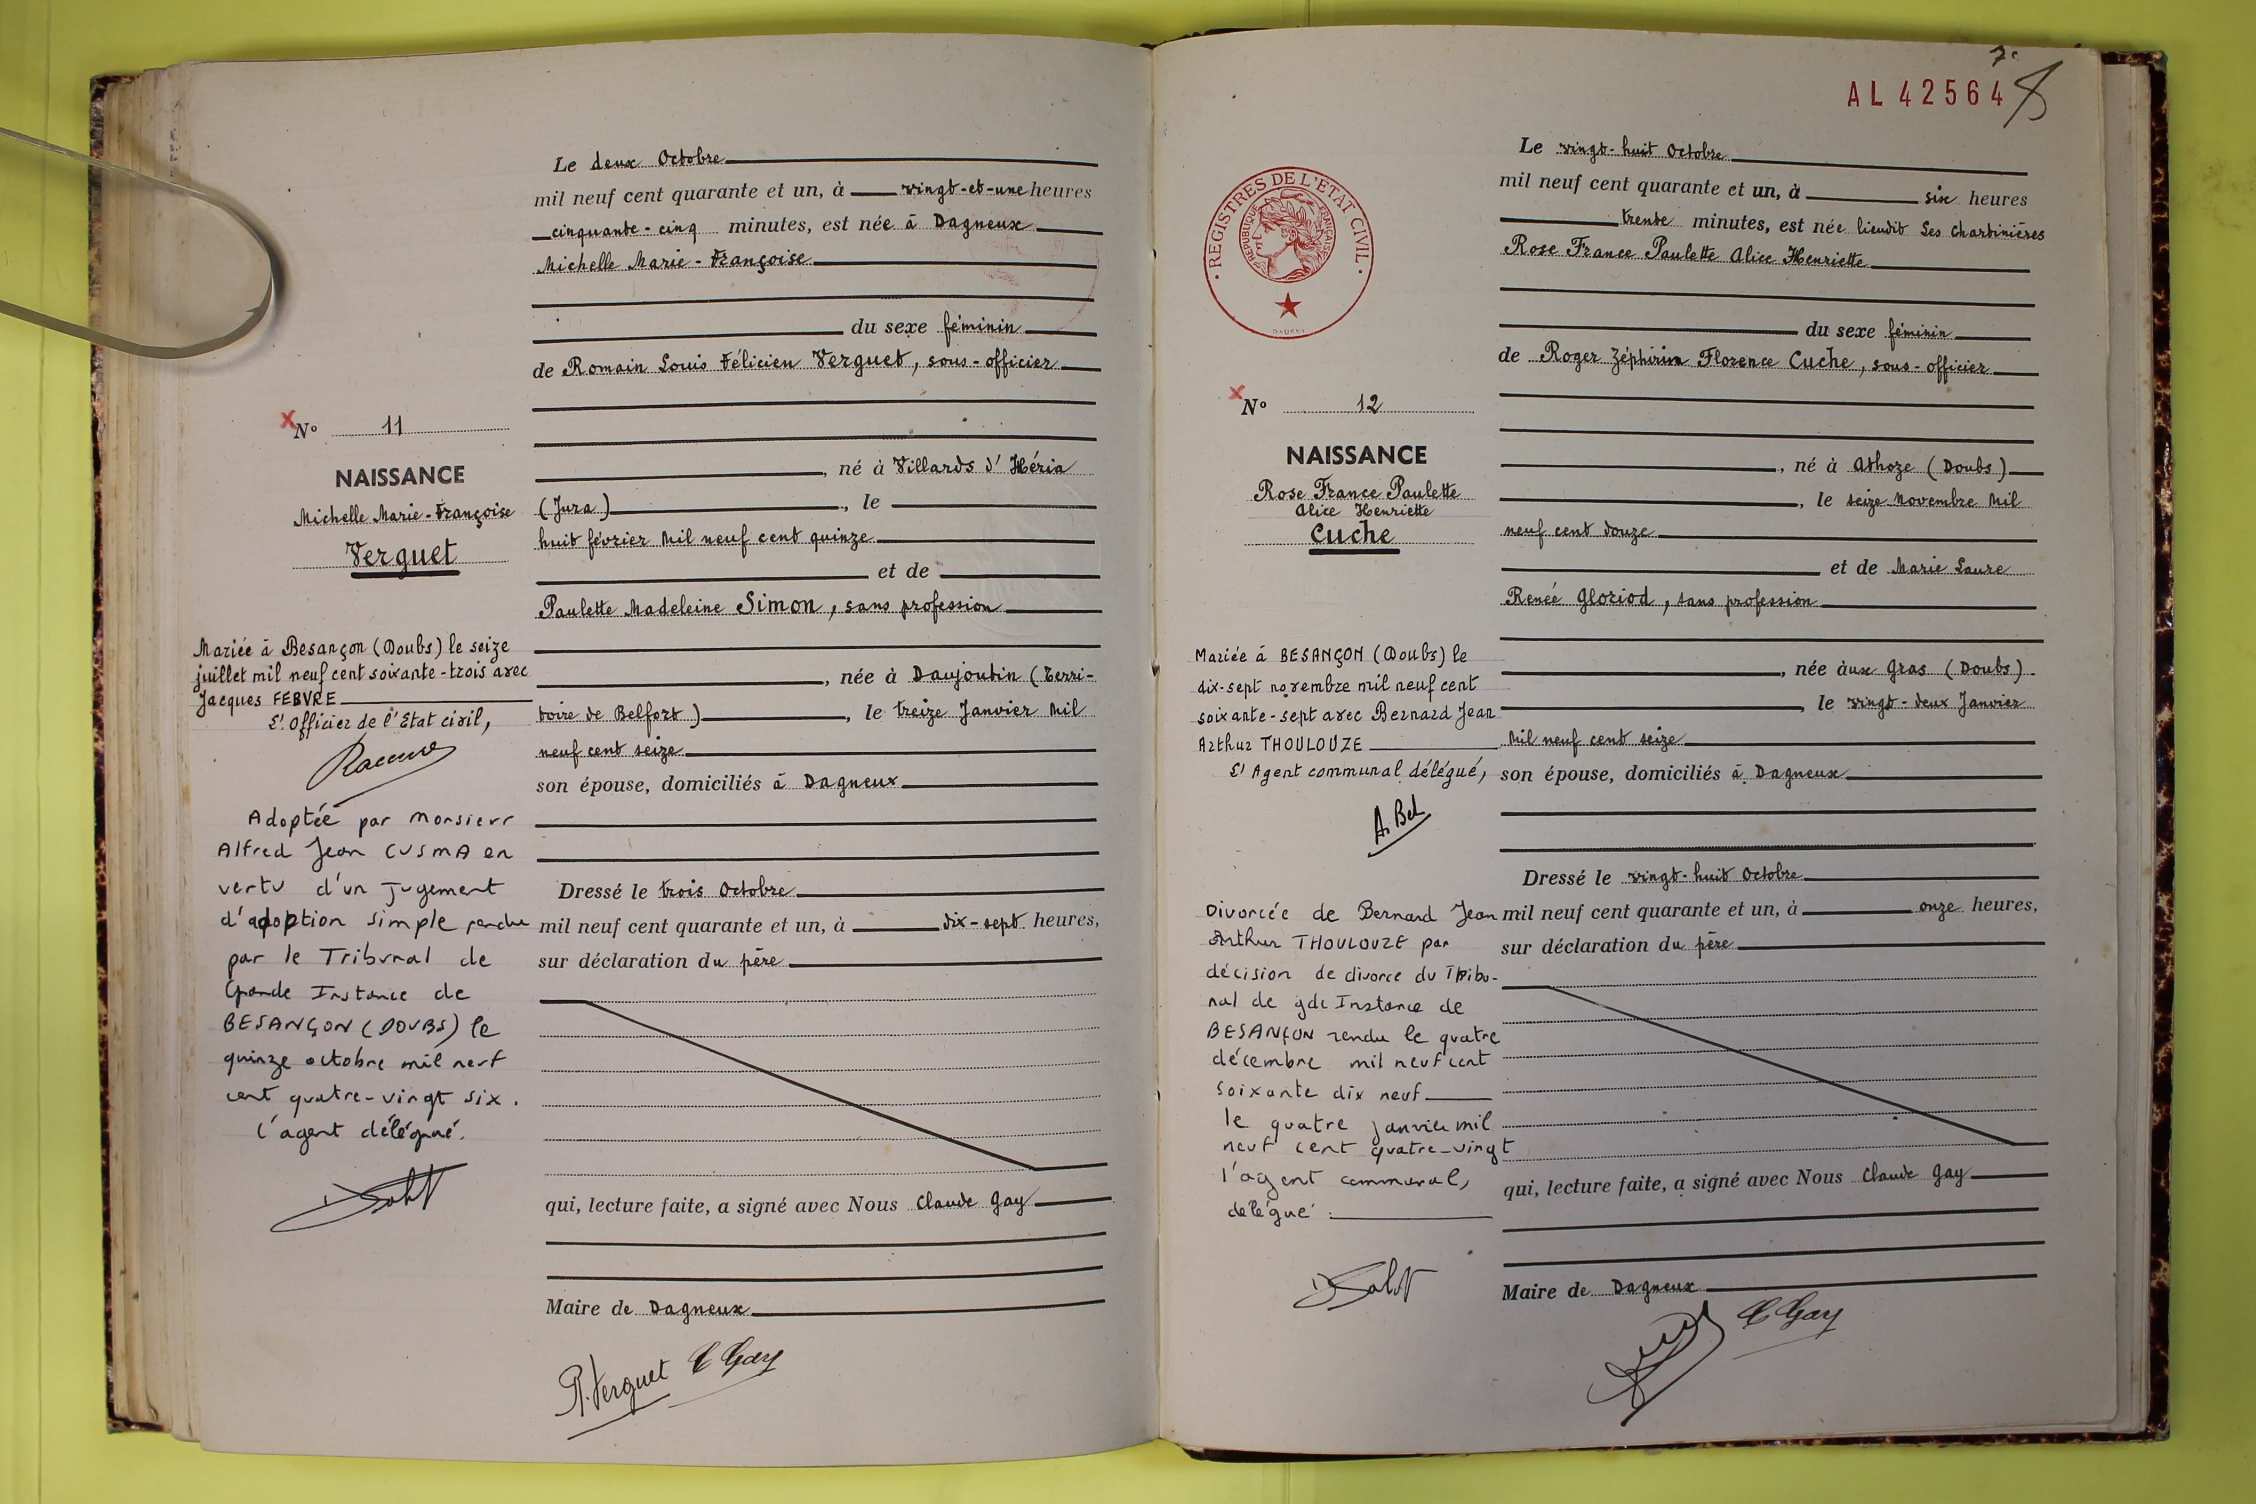 Le deux Octobre
mil neuf cent quarante et un, à vingt-et-une heures
cinquante-cinq minutes, est née à Dagneux
Michelle Marie-Françoise
du sexe féminin
de Romain Louis Félicien Verguet, sous-officier
, né à Villards d'Héria
(Jura), le
huit février mil neuf cent quinze
et de
Paulette Madeleine Simon, sans profession
, née à Danjoutin (Terri-
toire de Belfort), le treize Janvier mil
neuf cent seize
son épouse, domiciliés à Dagneux
Dressé le trois Octobre
mil neuf cent quarante et un, à dix-sept heures,
sur déclaration du père
qui, lecture faite, a signé avec Nous Claude Gay
Maire de Dagneux
R. Verguet C Gay
X N° 11
NAISSANCE
Michelle Marie-Françoise
Verguet
Mariée à Besançon (Doubs) le seize
juillet mil neuf cent soixante-trois avec
Jacques FEBVRE
L'Officier de l'Etat civil,
Adoptée par Monsieur
Alfred Jean CUSMA en
vertu d'un jugement
d'adoption simple rendu
par le Tribunal de
Grande Instance de
BESANÇON (DOUBS) le
quinze octobre mil neuf
cent quatre-vingt six.
l'agent délégué.
7
AL 42564
REGISTRES DE L'ETAT CIVIL
REPUBLIQUE FRANÇAISE
Le vingt-huit Octobre
mil neuf cent quarante et un, à six heures
trente minutes, est née lieudit Les Chartinières
Rose France Paulette Alice Henriette
du sexe féminin
de Roger Zéphirin Florence Cuche, sous-officier
, né à Athoze (Doubs)
, le seize Novembre mil
neuf cent douze
et de Marie Laure
Renée Gloriod, sans profession
, née aux Gras (Doubs)
, le vingt-deux Janvier
mil neuf cent seize
son épouse, domiciliés à Dagneux
Dressé le vingt-huit Octobre
mil neuf cent quarante et un, à onze heures,
sur déclaration du père
qui, lecture faite, a signé avec Nous Claude Gay
Maire de Dagneux
C Gay
X N° 12
NAISSANCE
Rose France Paulette
Alice Henriette
Cuche
Mariée à BESANÇON (Doubs) le
dix-sept novembre mil neuf cent
soixante-sept avec Bernard Jean
Arthur THOULOUZE
L'Agent communal délégué,
A. Bel
Divorcée de Bernard Jean
Arthur THOULOUZE par
décision de divorce du Tribu-
nal de gde Instance de
BESANÇON rendu le quatre
décembre mil neuf cent
soixante dix neuf
le quatre janvier mil
neuf cent quatre-vingt
l'agent communal,
délégué :